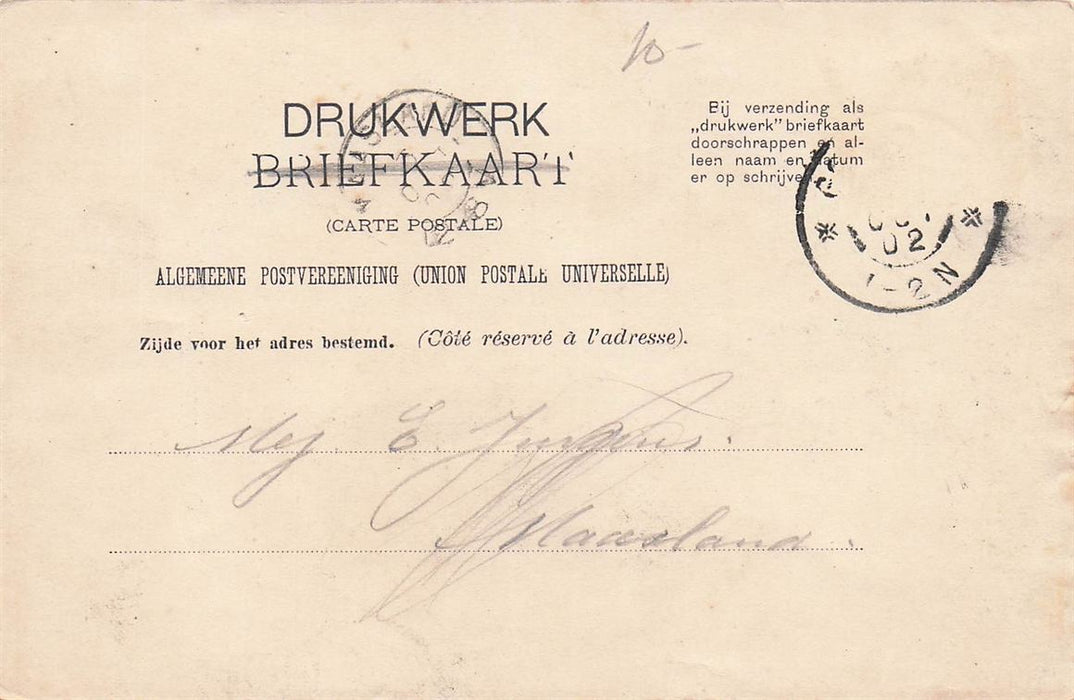 10-
DRUKWERK
BRIEFKAART
(CARTE POSTALE)
ALGEMEENE POSTVEREENIGING (UNION POSTALE UNIVERSELLE)
Zijde voor het adres bestemd. (Côté réservé à l'adresse).
Bij verzending als
„drukwerk" briefkaart
doorschrappen en al-
leen naam en datum
er op schrijven.
02
1-2N
Mej. E. Jurgens.
Maasland.